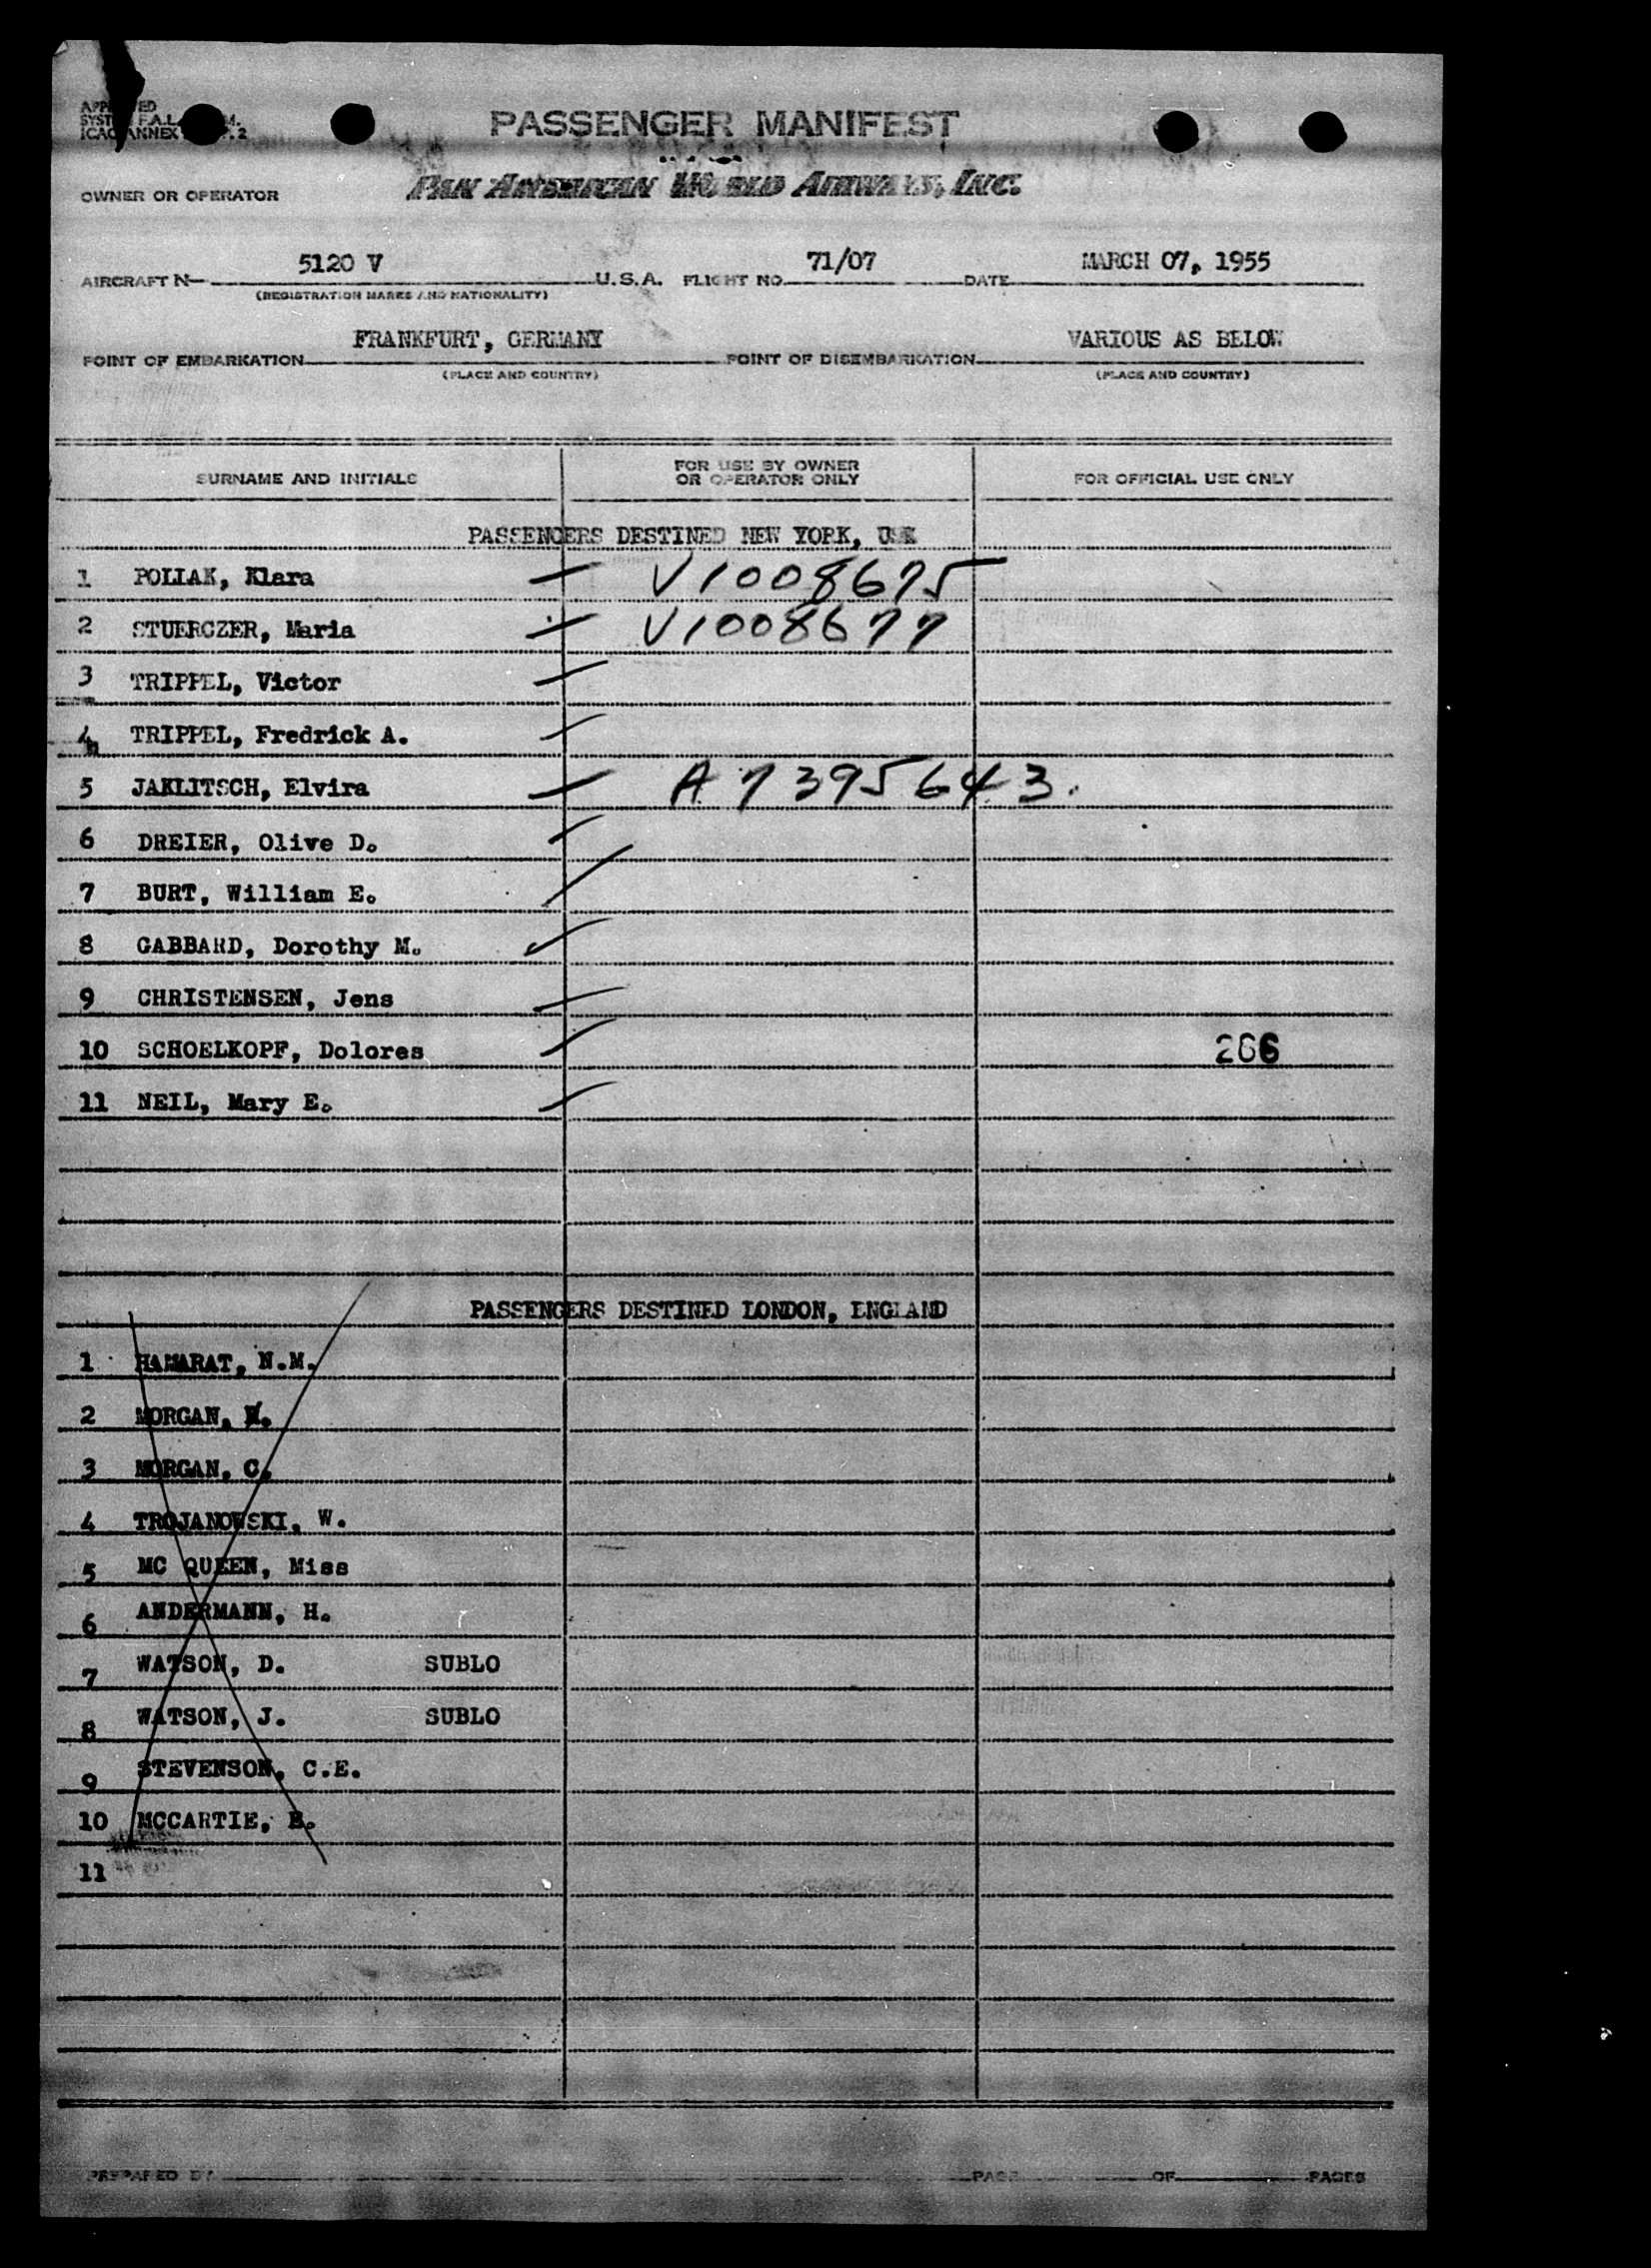 PASSENGER MANIFEST
OWNER OR OPERATOR PAN AMERICAN WORLD AIRWAYS, INC.
AIRCRAFT N 5120 V U.S.A. FLIGHT NO. 71/07 DATE MARCH 07, 1955
(REGISTRATION MARKS AND NATIONALITY)
POINT OF EMBARKATION FRANKFURT, GERMANY POINT OF DISEMBARKATION VARIOUS AS BELOW
(PLACE AND COUNTRY) (PLACE AND COUNTRY)
SURNAME AND INITIALS FOR USE BY OWNER OR OPERATOR ONLY FOR OFFICIAL USE ONLY
PASSENGERS DESTINED NEW YORK,
1 POLIAK, Klara V1008675
2 STUERCZER, Maria V1008677
3 TRIPPEL, Victor
4 TRIPPEL, Fredrick A.
5 JAKLITSCH, Elvira A 7395643.
6 DREIER, Olive D.
7 BURT, William E.
8 GABBARD, Dorothy M.
9 CHRISTENSEN, Jens
10 SCHOELKOPF, Dolores 266
11 NEIL, Mary E.
PASSENGERS DESTINED LONDON, ENGLAND
1 HAMARAT, N.M.
2 MORGAN,
3 MORGAN, C.
4 TROJANOWSKI, W.
5 MC QUEEN, Miss
6 ANDERMANN, H.
7 WATSON, D. SUBLO
8 WATSON, J. SUBLO
9 STEVENSON, C.E.
10 MCCARTIE, B.
11
PREPARED BY PAGE OF PAGES